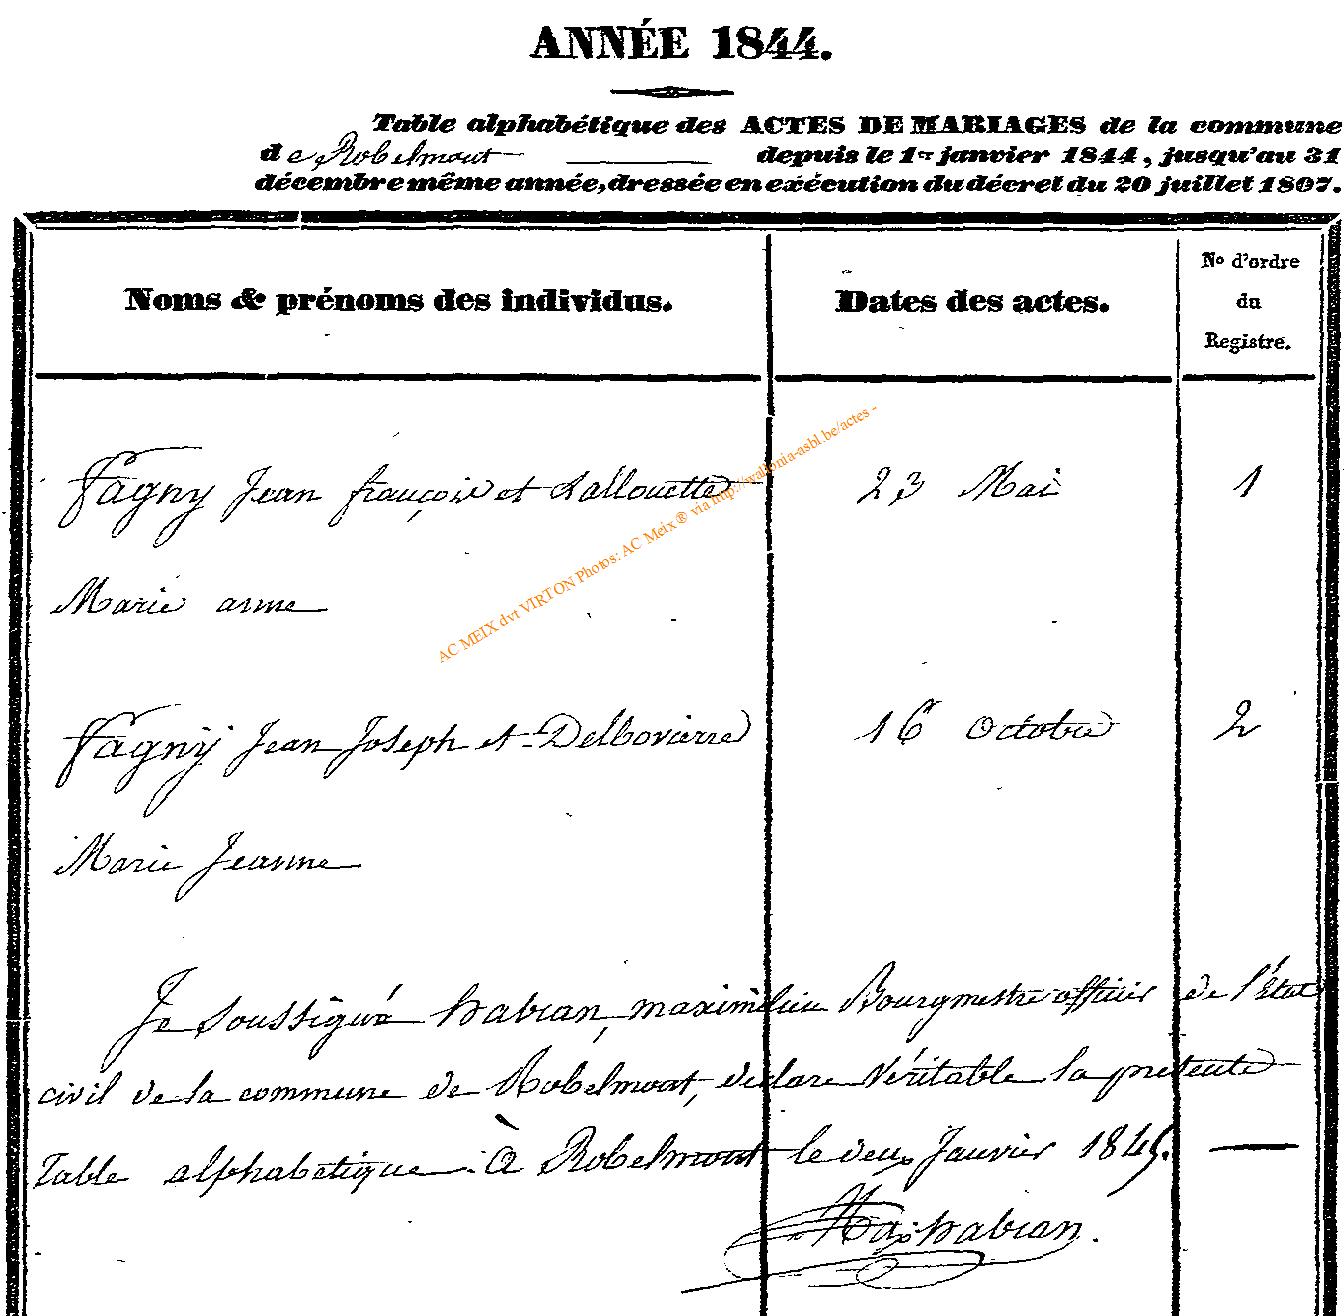 ANNÉE 1844.
Table alphabétique des ACTES DE MARIAGES de la commune
de Robelmont depuis le 1er janvier 1844, jusqu'au 31
décembre même année, dressée en exécution du décret du 20 juillet 1807.
Noms & prénoms des individus. Dates des actes. No d'ordre du Registre.
Fagny Jean françois et Lallouette 23 Mai 1
Marie anne
AC MEIX dvt VIRTON Photos: AC Meix ® via http://wallonia-asbl.be/actes -
Fagny Jean Joseph et 16 Octobre 2
Marie Jeanne
Je soussigné habran, maximilien Bourgmestre officier de l'état
civil de la commune de Robelmont, declare véritable la presente
Table alphabetique. à Robelmont le deux Janvier 1845.
Max habran.